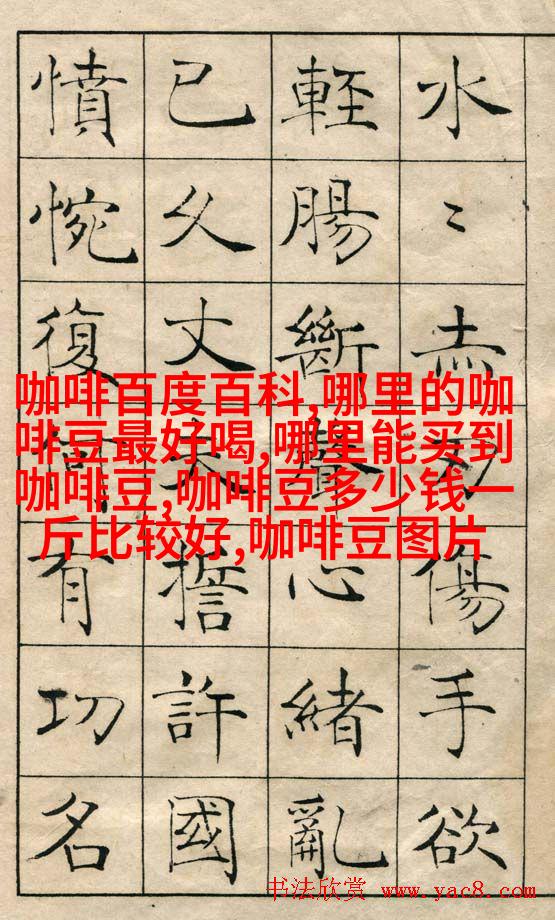 水〻赤刃傷手欲
輕腸斷聲心緒亂
已久丈夫誓許國
憤惋復何有功名
咖啡百度百科,哪里的咖
啡豆最好喝,哪里能买到
咖啡豆,咖啡豆多少钱一
斤比较好,咖啡豆图片
书法欣赏 www.yac8.com